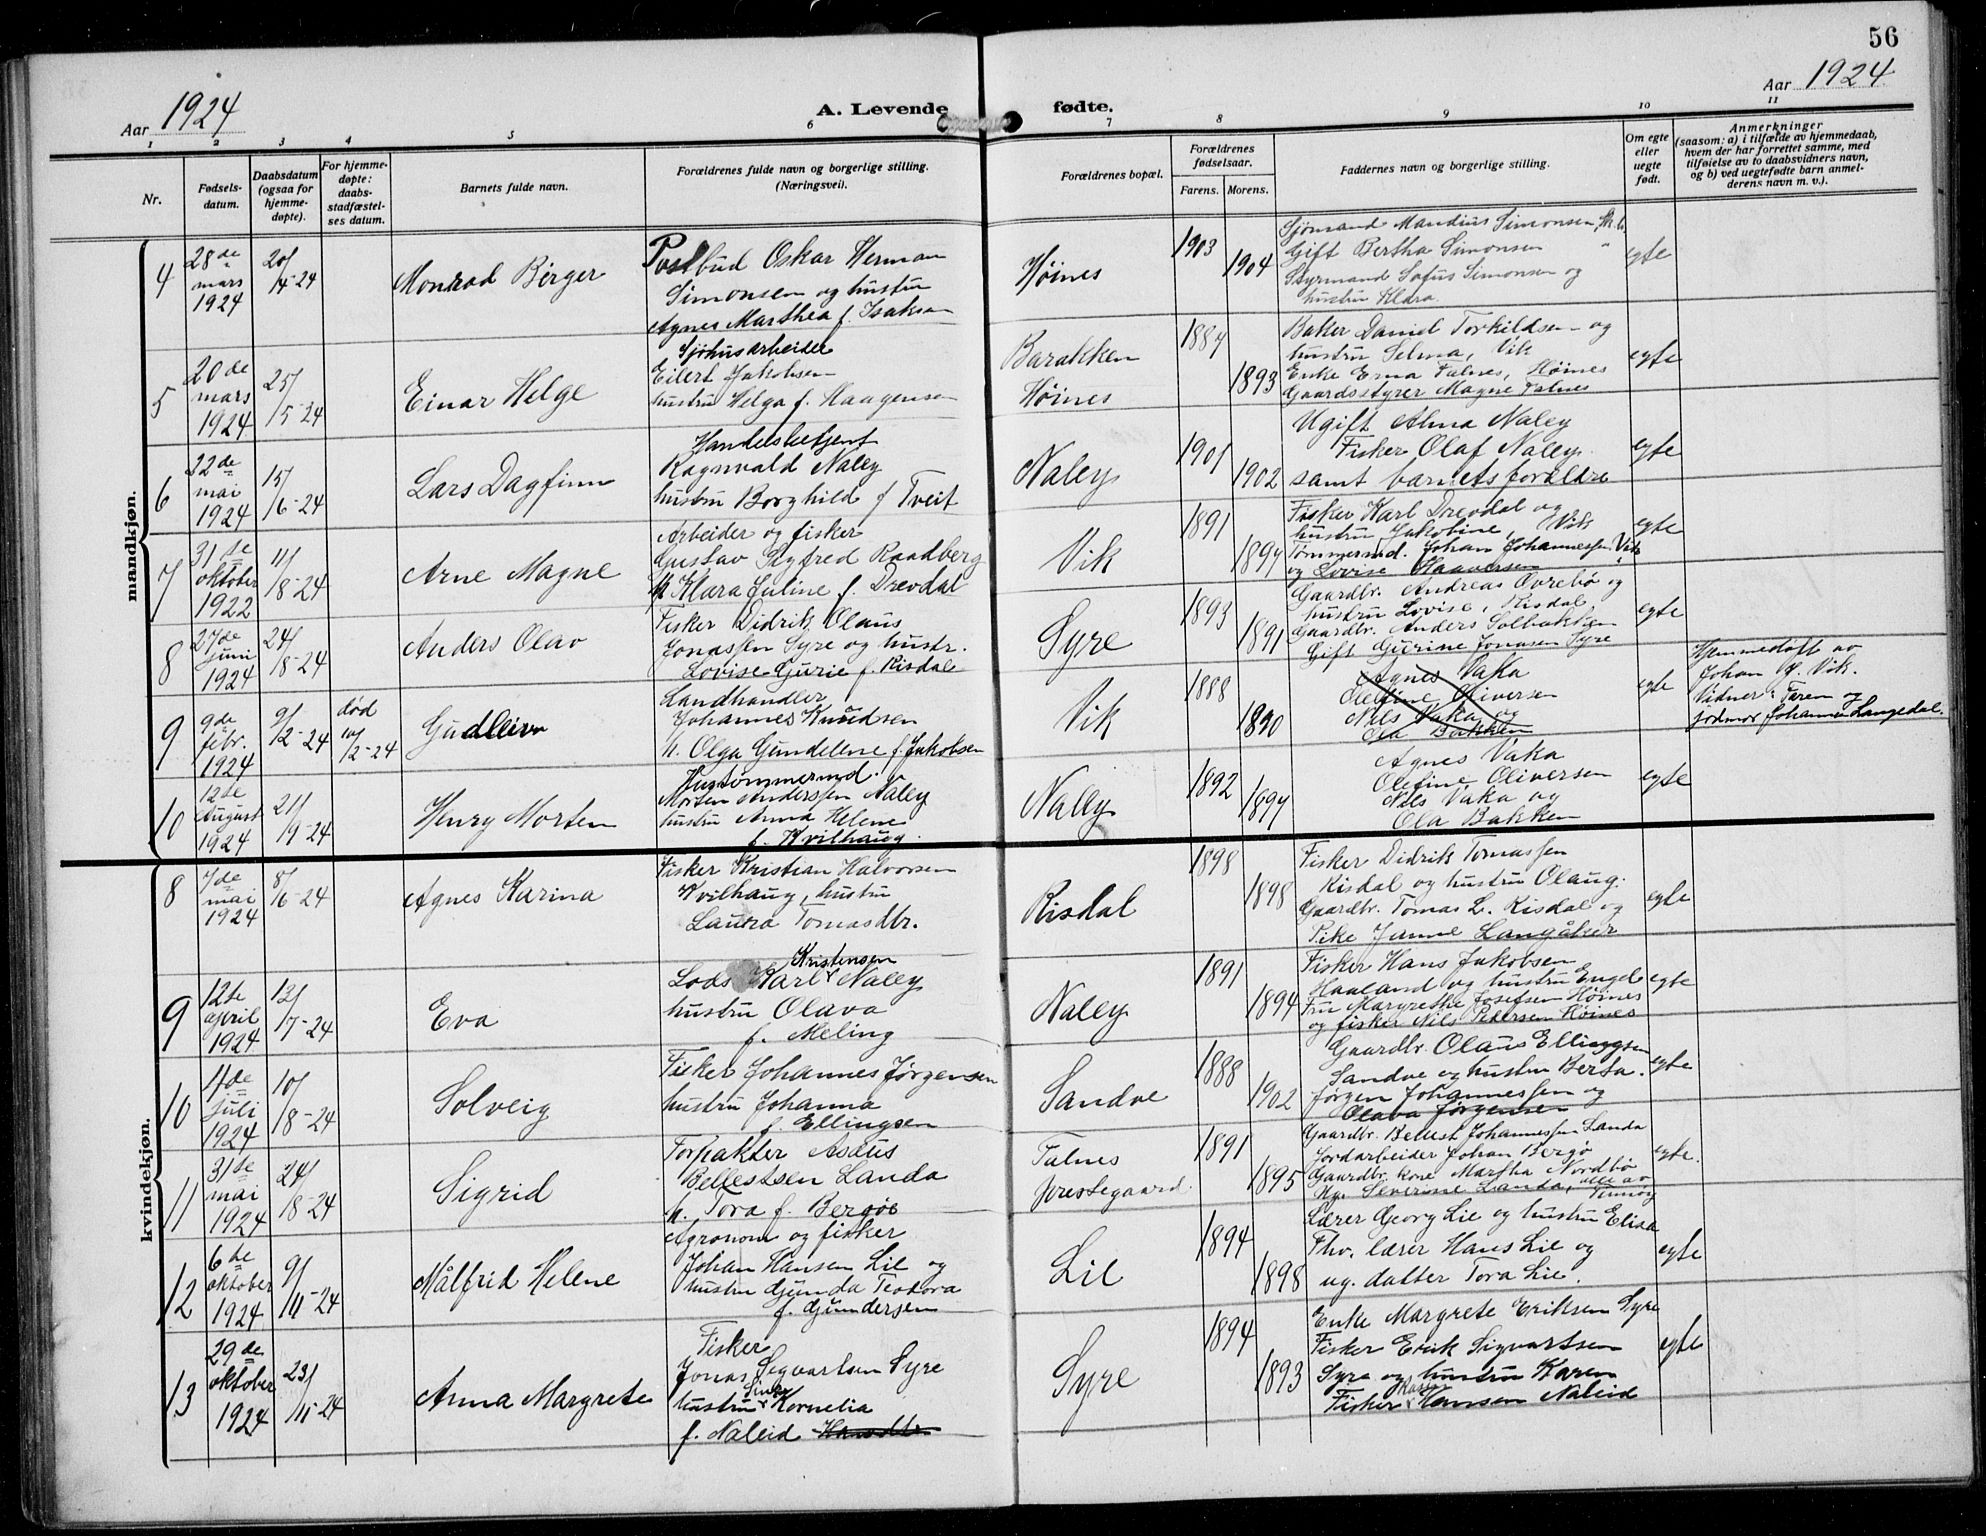 56
Aar 1924
A. Levende fødte.
Aar 1924
1 2 3 4 5 6 7 8 9 10 11
Nr.
Fødsels-
datum.
Daabsdatum
(ogsaa for
hjemme-
døpte).
For hjemme-
døpte:
daabs-
stadfæstel-
ses datum.
Barnets fulde navn.
Forældrenes fulde navn og borgerlige stilling.
(Næringsvei).
Forældrenes bopæl.
Forældrenes
fødselsaar.
Farens. Morens.
Faddernes navn og borgerlige stilling.
Om egte
eller
uegte
født.
Anmerkninger
(saasom: a) i tilfælde av hjemmedaab,
hvem der har forrettet samme, med
tilføielse av to daabsvidners navn,
og b) ved uegtefødte barn anmel-
derens navn m. v.).
mandkjøn.
4
28de
mars
1924
20/
4-24
Monrad Birger
Postbud Oskar Herman
Simonsen og hustru
Agnes Marthea f. Isaksen
Høines
1903
1904
Sjømand Mandius Simonsen,
Gift Bertha Simonsen "
Styrmand Sofus Simonsen og
hustru Klara
egte
5
20de
mars
1924
25/
5-24
Einar Helge
Sjøhusarbeider
Eilert Jakobsen
hustru Helga f. Haagensen
Barakken
Høines
1887
1893
Baker Daniel Torkildsen og
hustru Selma, Vik
Enke Ema Falnes, Høines
Gaardsstyrer Magne Falnes
egte
6
22de
mai
1924
15/
6-24
Lars Dagfinn
Handelsbetjent
Ragnvald Naley
hustru Borghild f Tveit
Naley
1901
1902
Ugift Alma Naley
Fisker Olaf Naley
samt barnets foreldre
egte
7
31te
oktober
1922
11/
18-24
Arne Magne
Arbeider og fisker
Gustav Sigfred Raadberg
H Klara Juline f. Drevdal
Vik
1891
1897
Fisker Karl Drevdal og
hustru Jakobine, Vik
Tømmermd. Johan Johannessen Vik
og Lovise Haaversen "
egte
8
27de
juni
1924
24/
18-24
Anders Olav
Fisker Didrik Olaus
Jonassen Syre og hustr.
Lovise Gurie f. Risdal
Syre
1893
1891
Gaardbr. Andreas Øvrebø og
hustru Lovise, Risdal
Gaardbr. Anders Solbakken
Gift Gurine Jonasen Syre
egte
9
9de
febr.
1924
9/
2-24
død
10/
2-24
Gudleiv
Landhandler
Johannes Knudsen
h. Olga Gundelene f. Jakobsen
Vik
1888
1890
Agnes Vaka
Olefine Oliversen
Nils Vaka og
Ola Bakken
egte
Hjemmedøpt av
Johan G. Vik.
Vidner: Faren og
jordmor Johanna Langedal.
10
12te
August
1924
21/
9-24
Henry Morten
Hustømmermd.
Morten Anderssen Naley
hustru Anna Helene
f. Kvilhaug.
Naley
1892
1897
Agnes Vaka
Olefine Oliversen
Nils Vaka og
Ola Bakken
egte
kvindekjøn.
8
7de
mai
1924
8/
6-24
Agnes Karina
Fisker Kristian Halvorsen
Kvilhaug, hustru
Laura Tomasdtr.
Risdal
1898
1898
Fisker Didrik Tomassen
Risdal og hustru Olaug.
Gaardbr. Tomas L. Risdal og
Pike Janne Langåker
egte
9
12te
april
1924
13/
7-24
Eva
Kristensen
Lods Karl Naley
hustru Olava
f. Meling
Naley
1891
1894
Fisker Hans Jakobsen
Haaland og hustru Engel
Fru Margrethe Josefsen Høines
og fisker Nils Pedersen Høines
egte
10
11de
juli
1924
10/
18-24
Solveig
Fisker Johannes Jørgensen
hustru Johanna
f. Ellingsen
Sandve
1888
1902
Gaardbr. Olaus Ellingsen
Sandve og hustru Berta.
Jørgen Johannessen og
Olava Jørgensen
egte
11
31te
mai
1924
24/
18-24
Sigrid
Forpakter Asaus
Bellestsen Landa
h. Tora f. Bergøe
Falnes
prestegaard
1891
1895
Gaardbr. Bellest Johannessen Landa
Jordarbeider Johan Bergø
Gaardbr. kone Martha Nordbø
Ug. Severine Landa, alle av
egte.
12
6de
oktober
1924
9/
11-24
Målfrid Helene
Agronom og fisker
Johan Hansen Lie og
hustru Gunda Teodora
f. Gundersen
Lie
1894
1898
Lærer Georg Lie og hustru Elisa
Fhv. lærer Hans Lie og
ug. datter Tora Lie.
egte
13
29de
oktober
1924
23/
11-24
Anna Margrete
Fisker
Jonas Sigvartsen Syre
hustru Kornelia
f. Naleid
Syre
1894
1893
Enke Margrete Eriksen Syre
Fisker Erik Sigvartsen
Syre og hustru Karen
Fisker Hansen Naleid
egte